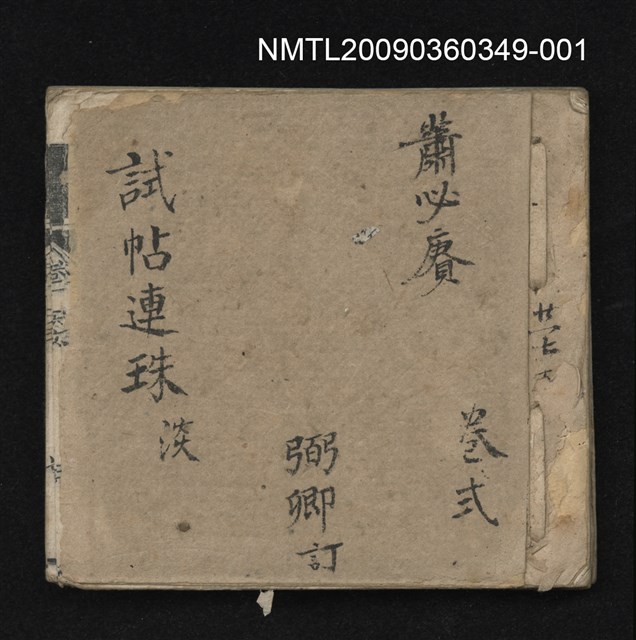 NMTL20090360349-001
蕭必賡
卷弍
弼卿訂
試帖連珠
淡